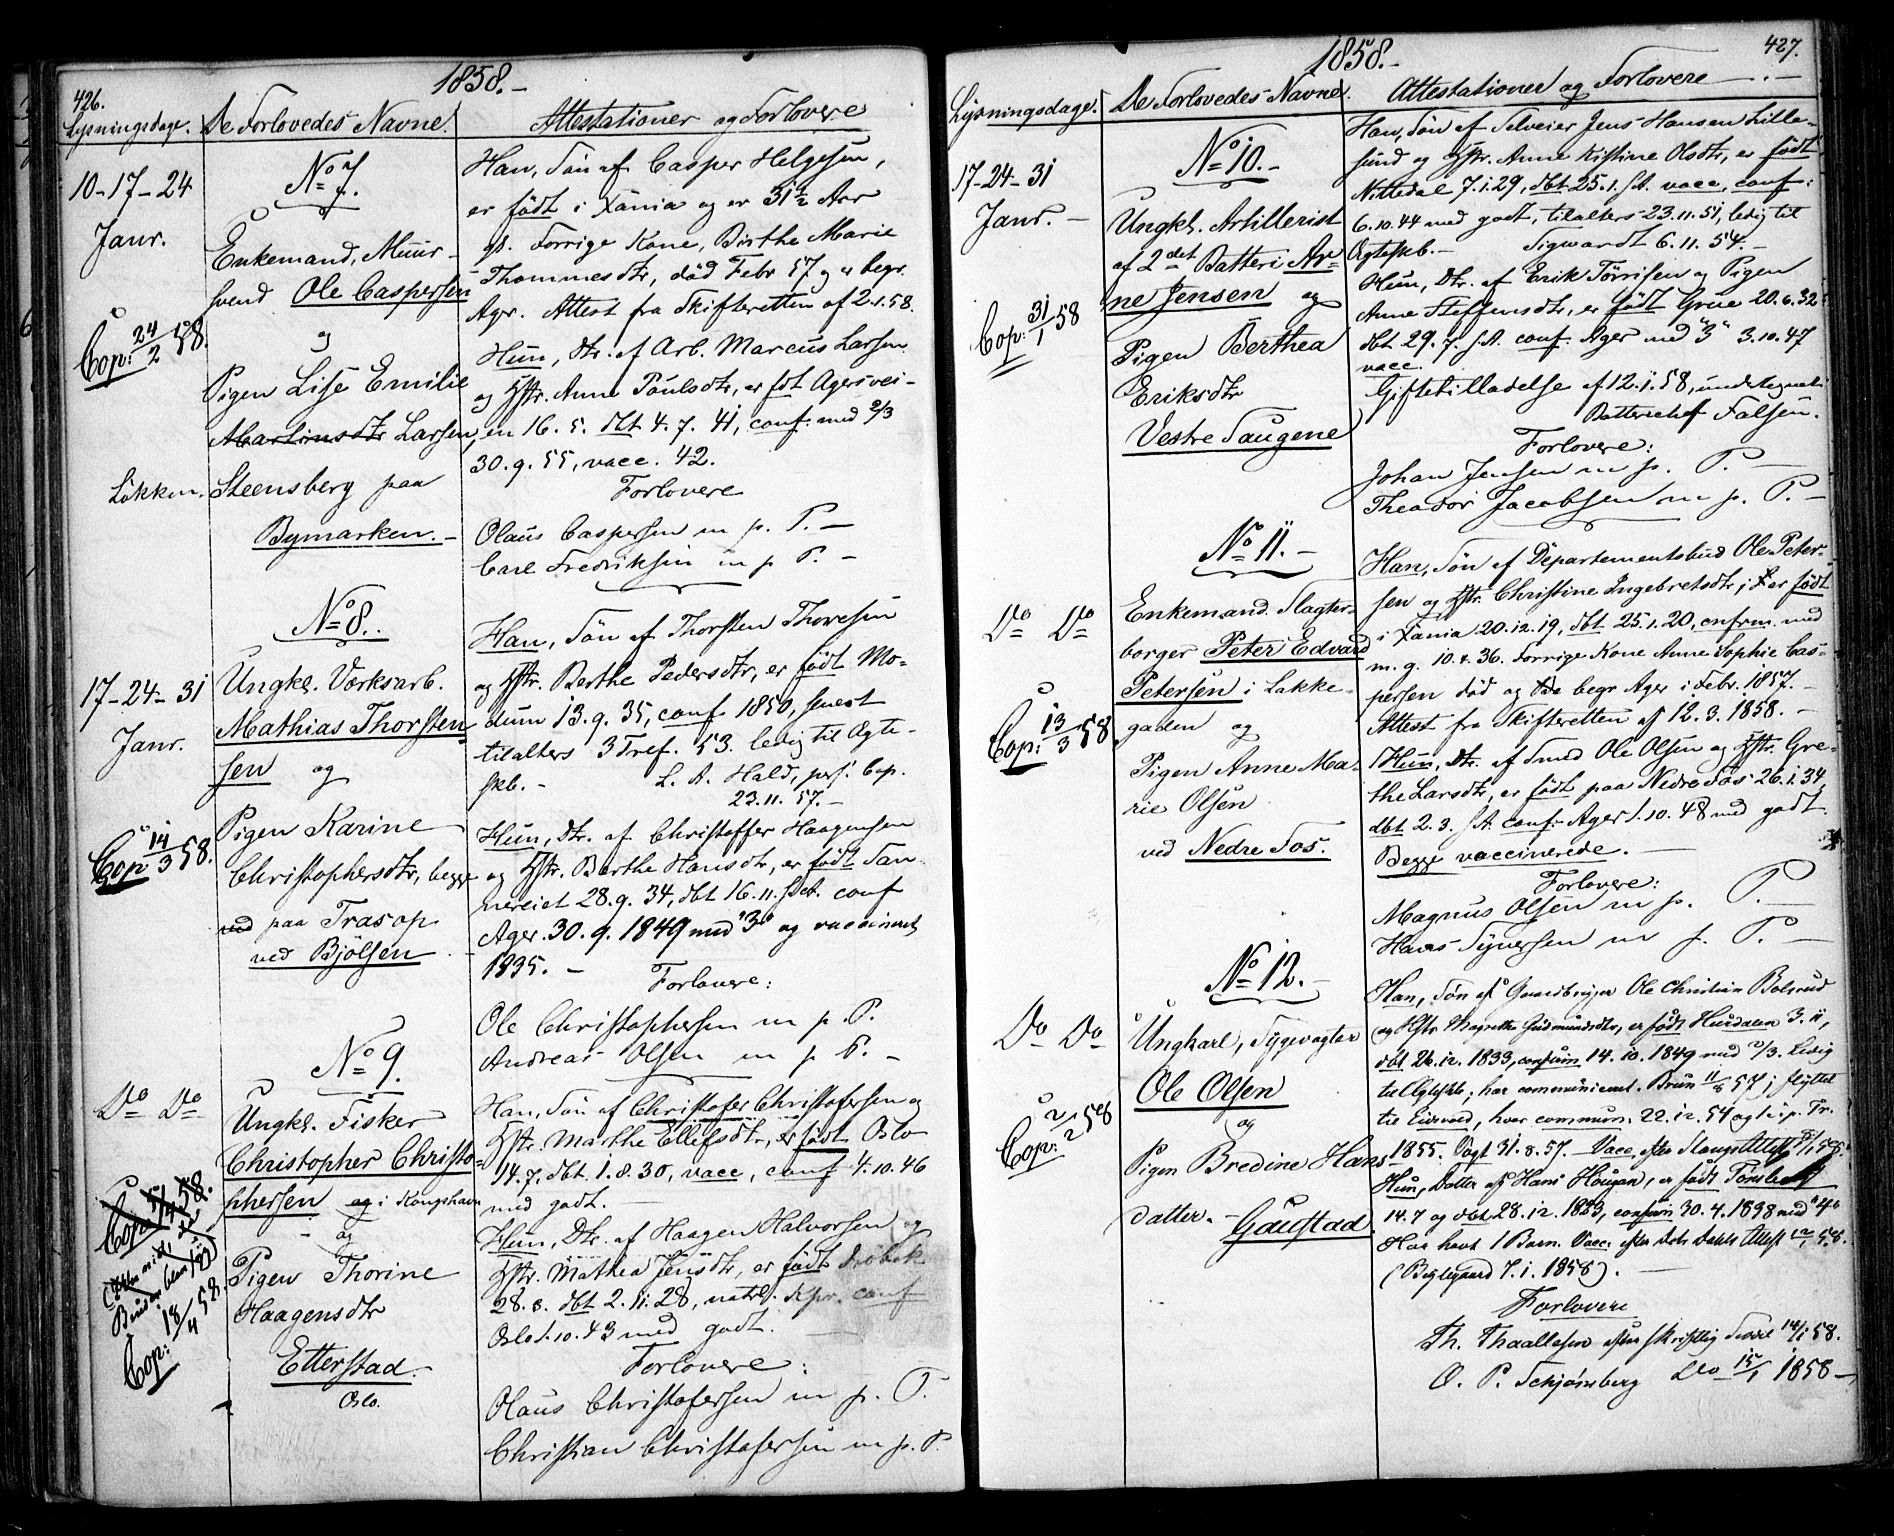 426.
1858.-
Lysningsdage. De Forlovedes Navne. Attestationer og Forlovere
10-17-24
Janr.
Cop: 24/2 58.
Løkken.
No 7.
Enkemand, Muur-
svend Ole Caspersen
og
Pigen Lise Emilie
Martinsdtr Larsen,
Steensberg paa
Bymarken.-
Han, Søn af Casper Helgesen,
er født i Xania og er 31½ Aar
gl. Forrige Kone, Birthe Marie
Thommesdtr, død Febr 57 og er begr.
Ager. Attest fra Skifteretten af 2.1.58.
Hun, Dtr. af Arb. Marcus Larsen
og Hstr. Anne Poulsdtr, er fdt Agersvei-
en 16.5. dbt 4.7.41, conf. med 2/3
30.9.55, vacc. 42.
Forlovere
Olaus Caspersen m p. P.-
Carl Fredriksen m p P.-
17-24-31
Janr.
Cop 14/3 58.
No 8.
Ungkl. Værksarb.
Mathias Thorsten
sen og
Pigen Karine
Christophersdtr, begge
ved paa Trasop
ved Bjølsen
Han, Søn af Thorsten Thoresen
og Hstr. Berthe Pedersdtr, er født Mo-
dum 13.9.35, conf 1850, senest
tilalters 3 Tref. 53. ledig til Ægte-
skb.- L. A. Hald, pers. Cap.
23.11.57.-
Hun, Dtr. af Christoffer Haagensen
og Hstr. Berthe Hansdtr, er født San-
nereiet 28.9.34, dbt 16.11. S.A. conf
Ager. 30.9.1849 med "3" og vaccineret
1835.-
Forlovere:
Ole Christophersen m p. P.
Andreas Olsen m p P.-
Do Do
Cop: 5/4 58.
Cop: 18/4 58.
No 9.
Ungkl. Fisker
Christopher Christo-
phersen og i Kongshavn
- og
Pigen Thorine
Haagensdtr
Etterstad.
Oslo.
Han, Søn af Christofer Christofersen og
Hstr. Marthe Ellefsdtr, er født Oslo
14.7. dbt 1.8.30, vacc, conf 4.10.46
med godt.
Hun, Dtr. af Haagen Halvorsen og
Hstr. Mathea Jensdtr, er født Drøbak
28.8. dbt 2.11.28, natrl. Kpr. conf
Oslo 1.10.43 med godt.
Forlovere:
Olaus Christofersen m p. P.
Christian Christofersen m p. P.
427.
1858.-
Lysningsdage. De Forlovedes Navne. Attestationer og Forlovere
17-24-31
Janr.-
Cop: 31/1 58
No 10.-
Ungkl. Artillerist
af 2det Batteri Ar-
ne Jensen og
Pigen Berthea
Eriksdtr
Vestre Saugene
Han, Søn af Selveier Jens Hansen Lille-
sund og Hstr. Anne Kistine Olsdtr, er født
Nittedal 7.1.29, dbt 25.1. S.A. vacc, conf:
6.10.44 med godt, tilalters 23.11.51, ledig til
Ægteskb.- Sigwardt 6.11.54.-
Hun, Dtr. af Erik Tørrisen og Pigen
Anne Steffensdtr, er født Grue 20.6.32
dbt 29.7. S.A. conf. Ager med "3" 3.10.47
vacc.
Giftetilladelse af 12.1.58, undertegnet
Batterichef Falsen.
Forlovere:
Johan Jensen m p. P.-
Theador Jacobsen m p. P.-
Do Do
Cop: 13/3 58
No 11.-
Enkemand. Slagter-
borger Peter Edvard
Petersen i Lakke-
gaden og
Pigen Anne Ma-
rie Olsen
ved Nedre Fos.
Han, Søn af Departementsbud Ole Peter-
sen og Hstr. Christine Ingebretsdtr, er født
i Xania 20.12.19, dbt 25.1.20, confrm. med
m. g. 10.4.36. Forrige Kone Anne Sophie Cas-
persen død og begr Ager i Febr. 1857.-
Attest fra Skifteretten af 12.3.1858.-
Hun, Dtr. af Smed Ole Olsen og Hstr. Gre-
the Larsdtr, er født paa Nedre Fos 26.1.34,
dbt 2.3. S.A. conf. Ager 1.10.48 med godt.
Begge vaccinerede.-
Forlovere:
Magnus Olsen m p. P.-
Hans Syversen m p. P.-
Do Do
Cop: 2/2 58
No 12.-
Ungkarl, Sygevogter
Ole Olsen
og
Pigen Bredine Hans
datter.- Gaustad
Han, Søn af Gaardbruger Ole Christian Bolsrud
og Hstr Magrethe Gudmundsdtr, er født Hurdalen 3.11,
dbt 26.12.1833, confirm 14.10.1849 med 2/3. Ledig
til Ægteskb, har communiceret. Brun 11/8 57; flyttet
til Eidsvold, hvor commun. 22.12.54 og Tr.
1855. Vogt 31.8.57. Vacc. efter Attest
Hun, Datter af Hans Haugan, er født Tønsberg
14.7 og dbt 28.12.1823, confirm 30.4.1838 med "4"
Har havt 1 Barn. Vacc. efter Attest
(Bryllegaard 7.1.1858).-
Forlovere
Th. Thaallesen efter skriftlig 14/1 58.
O. P. Schjønberg Do 15/1 1858-